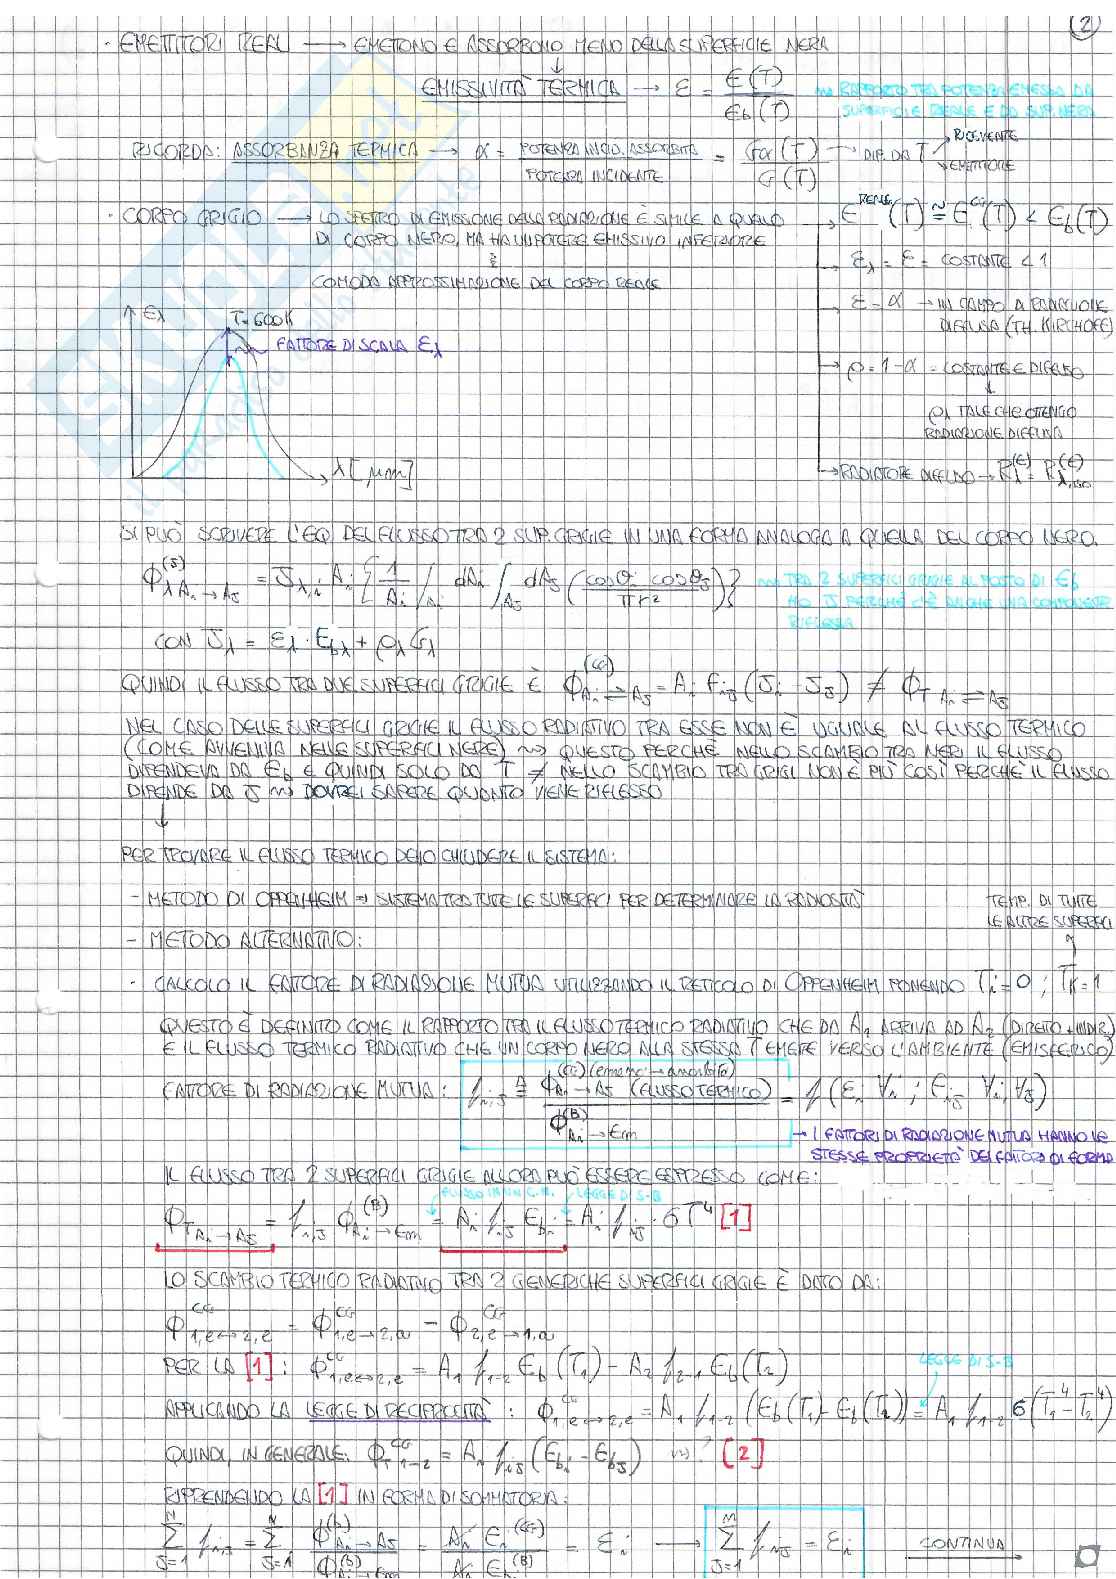 2
· EMETTITORI REALI → EMETTONO E ASSORBONO MENO DELLA SUPERFICIE NERA
↓
EMISSIVITÀ TERMICA → ε = E(T) / E_b(T) ⇝ RAPPORTO TRA POTENZA EMESSA DA
SUPERFICIE REALE E DA SUP. NERA
RICORDA: ASSORBANZA TERMICA → α = POTENZA INCID. ASSORBITA / POTENZA INCIDENTE = Gα(T) / G(T) → DIP. DA T
RICEVENTE
EMETTITORE
· CORPO GRIGIO → LO SPETTRO DI EMISSIONE DELLA RADIAZIONE È SIMILE A QUELLO
DI CORPO NERO, MA HA UN POTERE EMISSIVO INFERIORE
COMODA APPROSSIMAZIONE DEL CORPO REALE
→ E^REALE(T) ≅ E^CG(T) < E_b(T)
→ ε_λ = ε = COSTANTE < 1
→ ε = α → IN CAMPO DI RADIAZIONE
DIFFUSA (TH. KIRCHOFF)
→ ρ = 1-α = COSTANTE E DIFFUSO
↓
ρ_λ TALE CHE OTTENGO
RADIAZIONE DIFFUSA
→ RADIATORE DIFFUSO → R_λ^(E) = R_λ,ISO^(E)
E_λ
T=600K
FATTORE DI SCALA ε_λ
λ[μm]
SI PUÒ SCRIVERE L'EQ. DEL FLUSSO TRA 2 SUP. GRIGIE IN UNA FORMA ANALOGA A QUELLA DEL CORPO NERO.
ϕ_λ Ai→Aj^(J) = J_λ,i A_i { 1/A_i ∫_Ai dA_i ∫_Aj dA_j (cosθ_i cosθ_j / πr²) } ⇝ TRA 2 SUPERFICI GRIGIE AL POSTO DI E_b
HO J PERCHÉ C'È ANCHE UNA COMPONENTE
RIFLESSA
CON J_λ = ε_λ · E_bλ + ρ_λ G_λ
QUINDI IL FLUSSO TRA DUE SUPERFICI GRIGIE È ϕ_Ai⇌Aj^(CG) = A_i F_ij (J_i - J_j) ≠ ϕ_T Ai⇌Aj
NEL CASO DELLE SUPERFICI GRIGIE IL FLUSSO RADIATIVO TRA ESSE NON È UGUALE AL FLUSSO TERMICO
(COME AVVENIVA NELLE SUPERFICI NERE) ⇝ QUESTO PERCHÈ NELLO SCAMBIO TRA NERI IL FLUSSO
DIPENDEVA DA E_b E QUINDI SOLO DA T ≠ NELLO SCAMBIO TRA GRIGI NON È PIÙ COSÌ PERCHÈ IL FLUSSO
DIPENDE DA J ⇝ DOVREI SAPERE QUANTO VIENE RIFLESSO
↓
PER TROVARE IL FLUSSO TERMICO DEVO CHIUDERE IL SISTEMA:
- METODO DI OPPENHEIM ⇒ SISTEMA TRA TUTTE LE SUPERFICI PER DETERMINARE LA RADIOSITÀ
TEMP. DI TUTTE
LE ALTRE SUPERFICI
- METODO ALTERNATIVO:
· CALCOLO IL FATTORE DI RADIAZIONE MUTUA UTILIZZANDO IL RETICOLO DI OPPENHEIM PONENDO T_i=0 ; T_K=1
QUESTO È DEFINITO COME IL RAPPORTO TRA IL FLUSSO TERMICO RADIATIVO CHE DA A1 ARRIVA AD A2 (DIRETTO+INDIR.)
E IL FLUSSO TERMICO RADIATIVO CHE UN CORPO NERO ALLA STESSA T EMETTE VERSO L'AMBIENTE (EMISFERICO)
FATTORE DI RADIAZIONE MUTUA: f_i,j ≜ ϕ_Ai→Aj^(CG) (emesso → assorbito) (FLUSSO TERMICO) / ϕ_Ai→Em^(B) = f(ε_i ∀i ; F_ij ∀i,∀j)
→ I FATTORI DI RADIAZIONE MUTUA HANNO LE
STESSE PROPRIETÀ DEI FATTORI DI FORMA
IL FLUSSO TRA 2 SUPERFICI GRIGIE ALLORA PUÒ ESSERE ESPRESSO COME:
FLUSSO IN UN C.N. LEGGE DI S-B
ϕ_T Ai→Aj = f_i,j ϕ_Ai→Em^(B) = A_i f_ij E_bi = A_i f_ij · σT⁴ [1]
LO SCAMBIO TERMICO RADIATIVO TRA 2 GENERICHE SUPERFICI GRIGIE È DATO DA:
ϕ_1,e↔2,e^CG = ϕ_1,e→2,a^CG - ϕ_2,e→1,a^CG
PER LA [1]: ϕ_1,e↔2,e^CG = A_1 f_1-2 E_b(T_1) - A_2 f_2-1 E_b(T_2)
LEGGE DI S-B
APPLICANDO LA LEGGE DI RECIPROCITÀ : ϕ_1,e↔2,e^CG = A_1 f_1-2 (E_b(T_1) - E_b(T_2)) = A_1 f_1-2 σ(T_1⁴ - T_2⁴)
QUINDI, IN GENERALE: ϕ_T 1-2^CG = A_i f_ij (E_bi - E_bj) ⇝? [2]
RIPRENDENDO LA [1] IN FORMA DI SOMMATORIA:
∑_{J=1}^N f_ij = ∑_{J=1}^N ϕ_Ai→Aj^(b) / ϕ_Ai→Em^(B) = A_i E_i^(CG) / A_i E_i^(B) = ε_i → ∑_{J=1}^N f_ij = ε_i CONTINUA